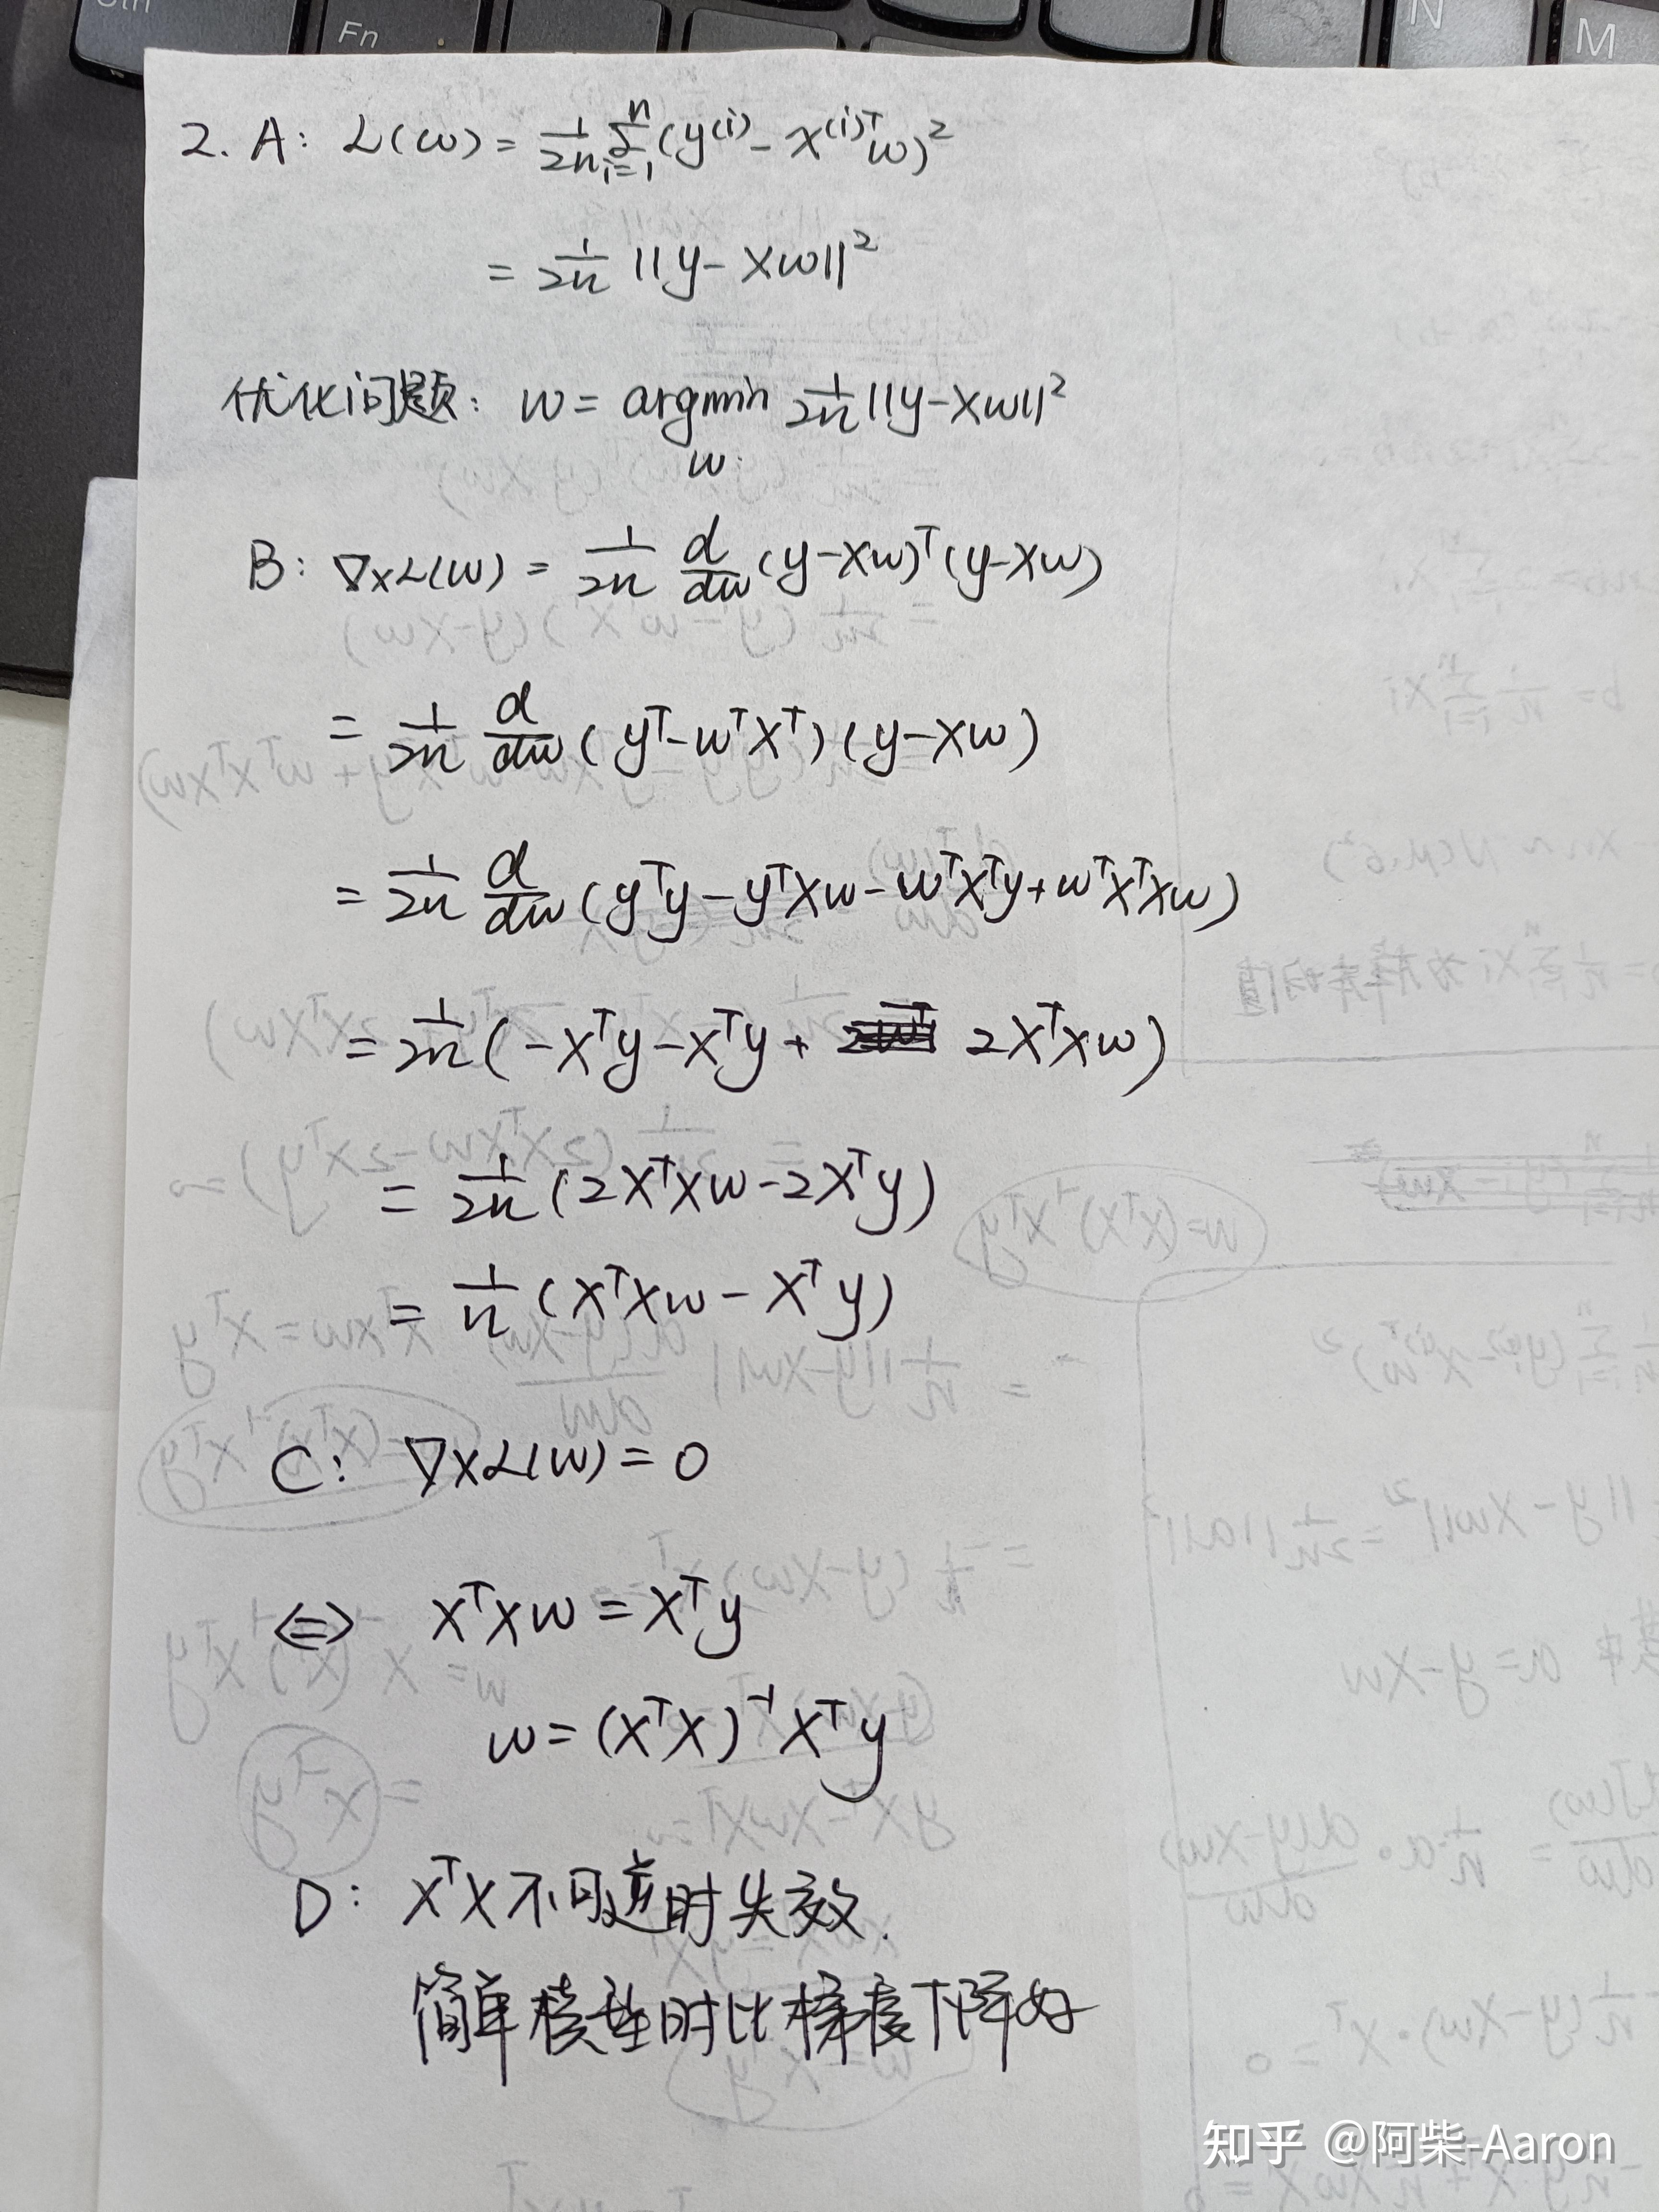 Ctrl
Fn
N
M
2. A: L(w) = 1/2n Σ_{i=1}^{n} (y^{(i)} - x^{(i)T}w)²
= 1/2n ||y - Xw||²
优化问题: w = argmin_w 1/2n ||y - Xw||²
B: ∇xL(w) = 1/2n d/dw (y - Xw)ᵀ(y - Xw)
= 1/2n d/dw (yᵀ - wᵀXᵀ)(y - Xw)
= 1/2n d/dw (yᵀy - yᵀXw - wᵀXᵀy + wᵀXᵀXw)
= 1/2n (-Xᵀy - Xᵀy + 2XᵀXw)
= 1/2n (2XᵀXw - 2Xᵀy)
= 1/n (XᵀXw - Xᵀy)
C: ∇xL(w) = 0
⇔ XᵀXw = Xᵀy
w = (XᵀX)⁻¹Xᵀy
D: XᵀX不可逆时失效.
简单模型时比梯度下降好
知乎 @阿柴-Aaron